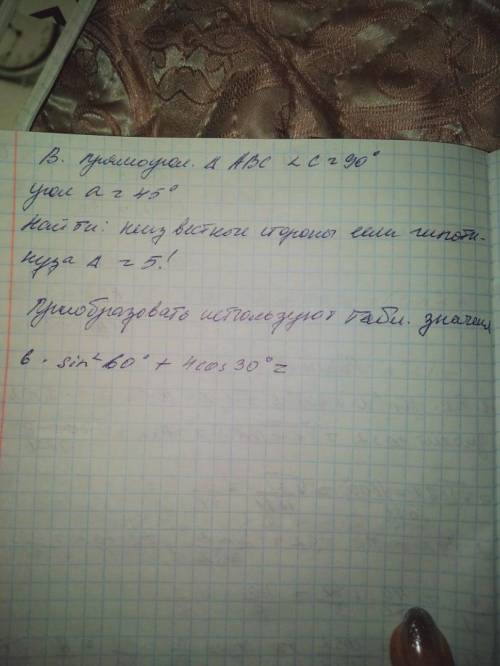 В. прямоугол. Δ ABC ∠C = 90°
угол a = 45°
Найти: неизвестные стороны если гипоти-
нуза Δ = 5!
Приобразовать используют Табл. значения
6 · sin² 60° + 4cos 30° =